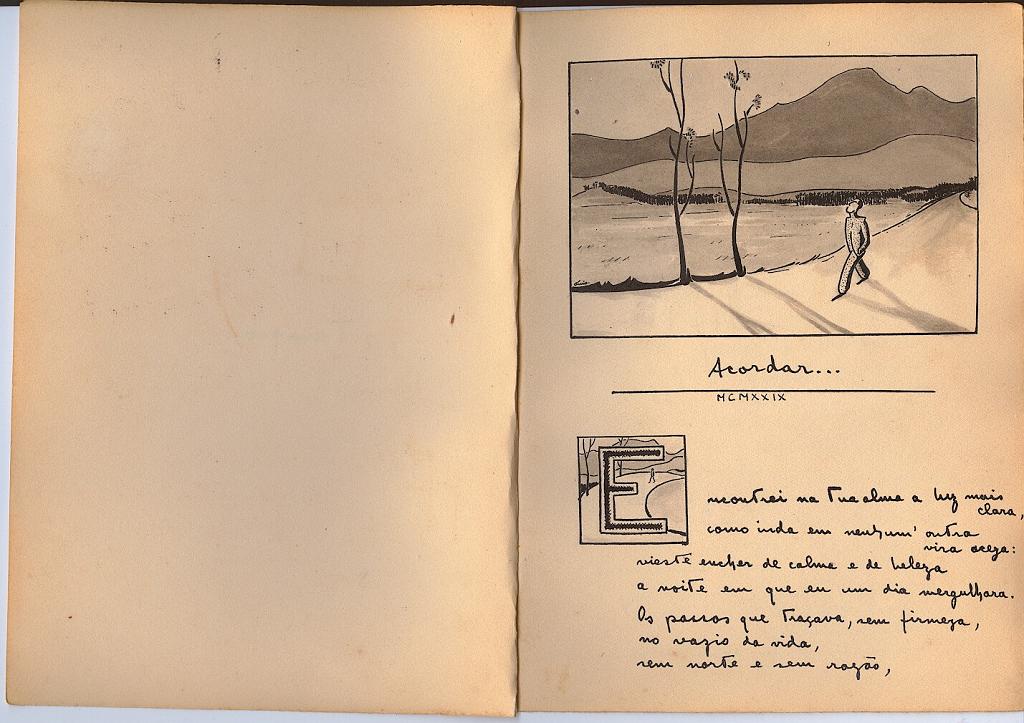 Acordar...
MCMXXIX
Encontrei na tua alma a luz mais
clara,
como inda em nenhum' outra
vira acesa:
vieste encher de calma e de beleza
a noite em que eu um dia mergulhara.
Os passos que traçava, sem firmeza,
no vazio da vida,
sem norte e sem razão,